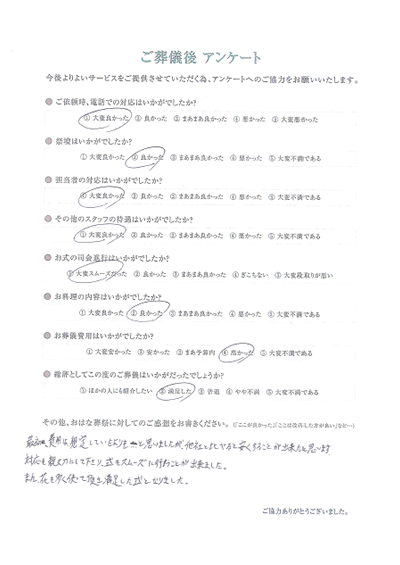 ご葬儀後 アンケート
今後よりよいサービスをご提供させていただく為、アンケートへのご協力をお願いいたします。
ご依頼時、電話での対応はいかがでしたか?
① 大変良かった ② 良かった ③ まあまあ良かった ④ 悪かった ⑤ 大変悪かった
祭壇はいかがでしたか?
① 大変良かった ② 良かった ③ まあまあ良かった ④ 悪かった ⑤ 大変不満である
担当者の対応はいかがでしたか?
① 大変良かった ② 良かった ③ まあまあ良かった ④ 悪かった ⑤ 大変不満である
その他のスタッフの待遇はいかがでしたか?
① 大変良かった ② 良かった ③ まあまあ良かった ④ 悪かった ⑤ 大変不満である
お式の司会進行はいかがでしたか?
① 大変スムーズだった ② 良かった ③ まあまあ良かった ④ ぎこちない ⑤ 大変段取りが悪い
お料理の内容はいかがでしたか?
① 大変良かった ② 良かった ③ まあまあ良かった ④ 悪かった ⑤ 大変不満である
お葬儀費用はいかがでしたか?
① 大変安かった ② 安かった ③ まあ予算内 ④ 高かった ⑤ 大変不満である
総評としてこの度のご葬儀はいかがだったでしょうか?
① ほかの人にも紹介したい ② 満足した ③ 普通 ④ やや不満 ⑤ 大変不満である
その他、おはな葬祭に対してのご感想をお書きください。(「ここが良かった」「ここは改善した方がいい」など…)
費用は想定していたよりも と思いましたが、他社と比べると安くすることが出来たと思います
対応も親切にして下さり、式もスムーズに行うことが出来ました。
また、花を多く使って頂き満足した式となりました。
ご協力ありがとうございました。